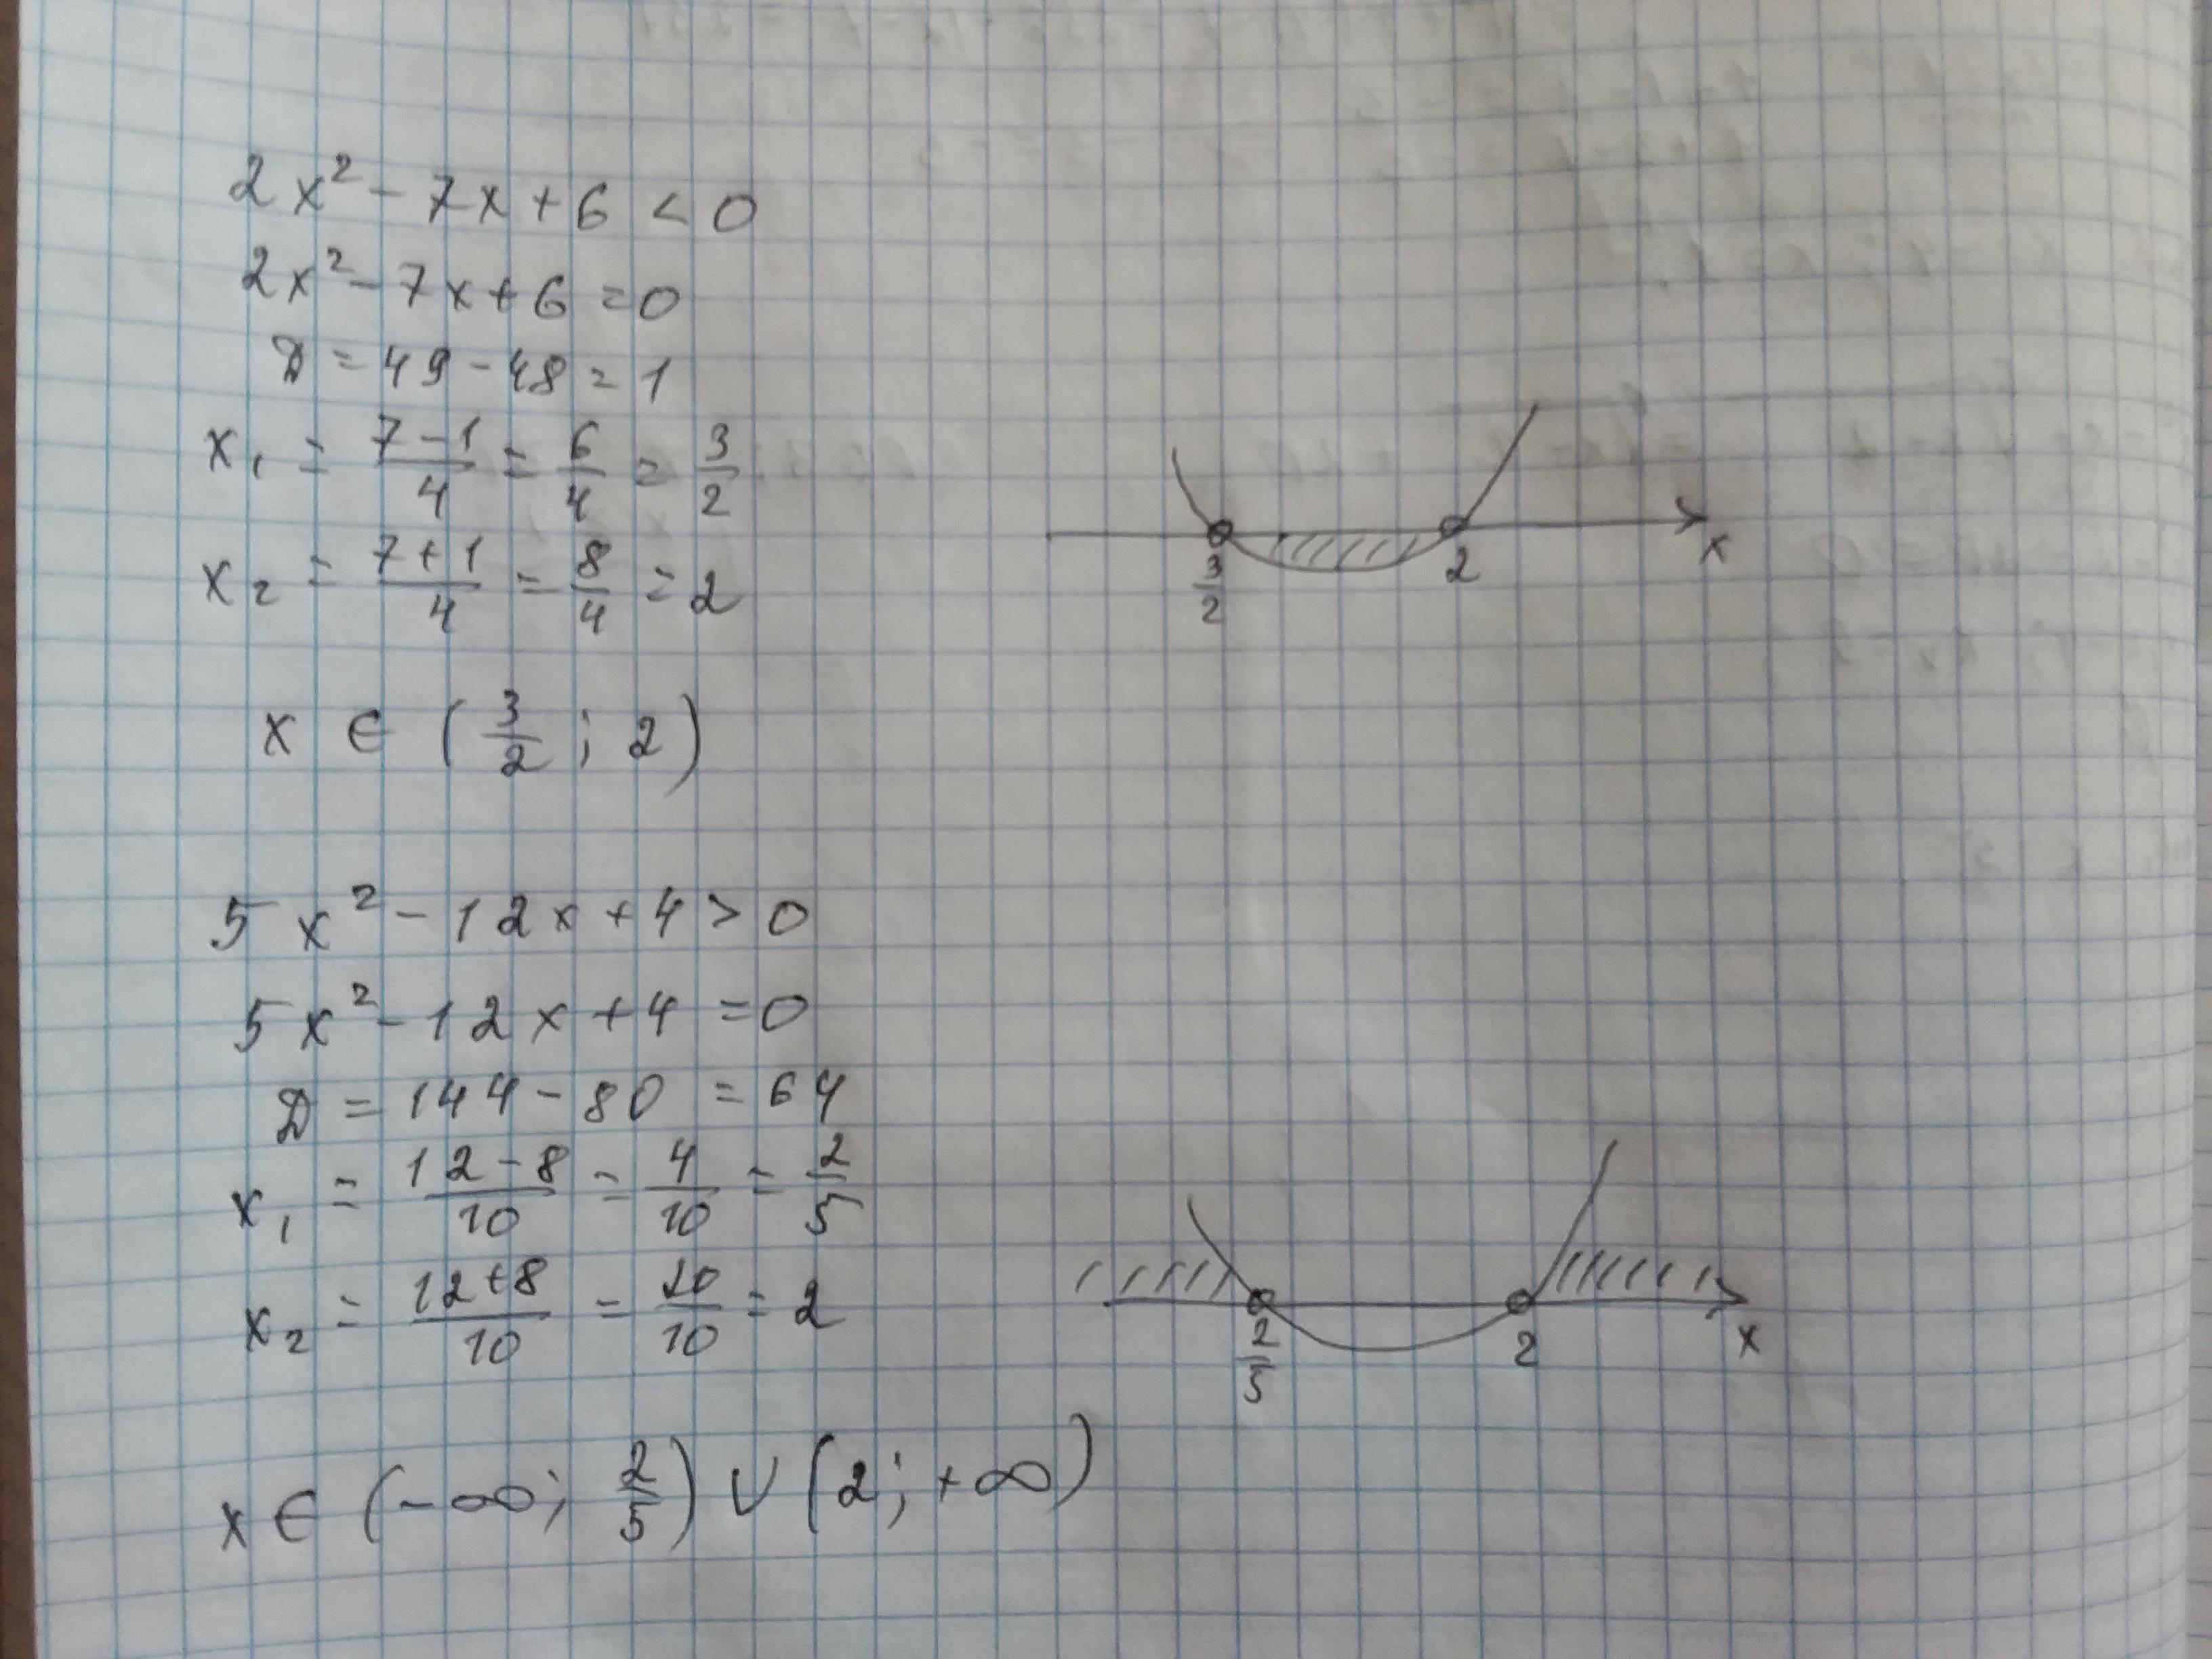 2x² - 7x + 6 < 0
2x² - 7x + 6 = 0
D = 49 - 48 = 1
x₁ = (7 - 1)/4 = 6/4 = 3/2
x₂ = (7 + 1)/4 = 8/4 = 2
3/2 2 x
x ∈ (3/2; 2)
5x² - 12x + 4 > 0
5x² - 12x + 4 = 0
D = 144 - 80 = 64
x₁ = (12 - 8)/10 = 4/10 = 2/5
x₂ = (12 + 8)/10 = 20/10 = 2
2/5 2 x
x ∈ (-∞; 2/5) ∪ (2; +∞)